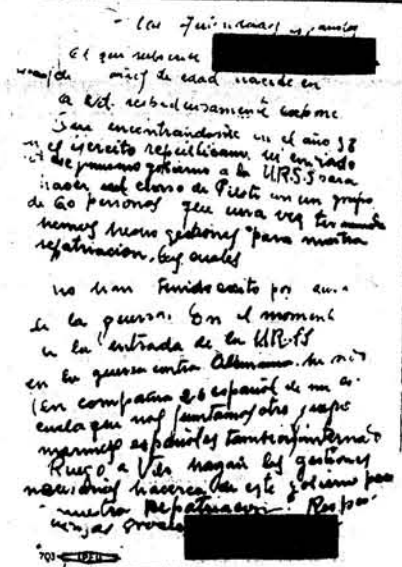 - Las Autoridades españolas
El que subscribe
de años de edad nacido en
a Vd. respetuosamente expone
Que encontrandome en el año 38
en el ejercito republicano fui enviado
gobierno a la U.R.S.S para
hacer un curso de Piloto en un grupo
de 60 personas que una vez
hemos hecho gestiones para nuestra
repatriacion, las cuales
no han tenido exito por
de la guerra. En el momento
de la entrada de la U.R.SS
en la guerra contra Alemania
(En compañia 26 español de mi es
cuela que nos juntamos otro grupo
marinos españoles tambien internado
Ruego a Vds hagan las gestiones
necesarias hacerca de este gobierno para
nuestra Repatriacion.
gracias